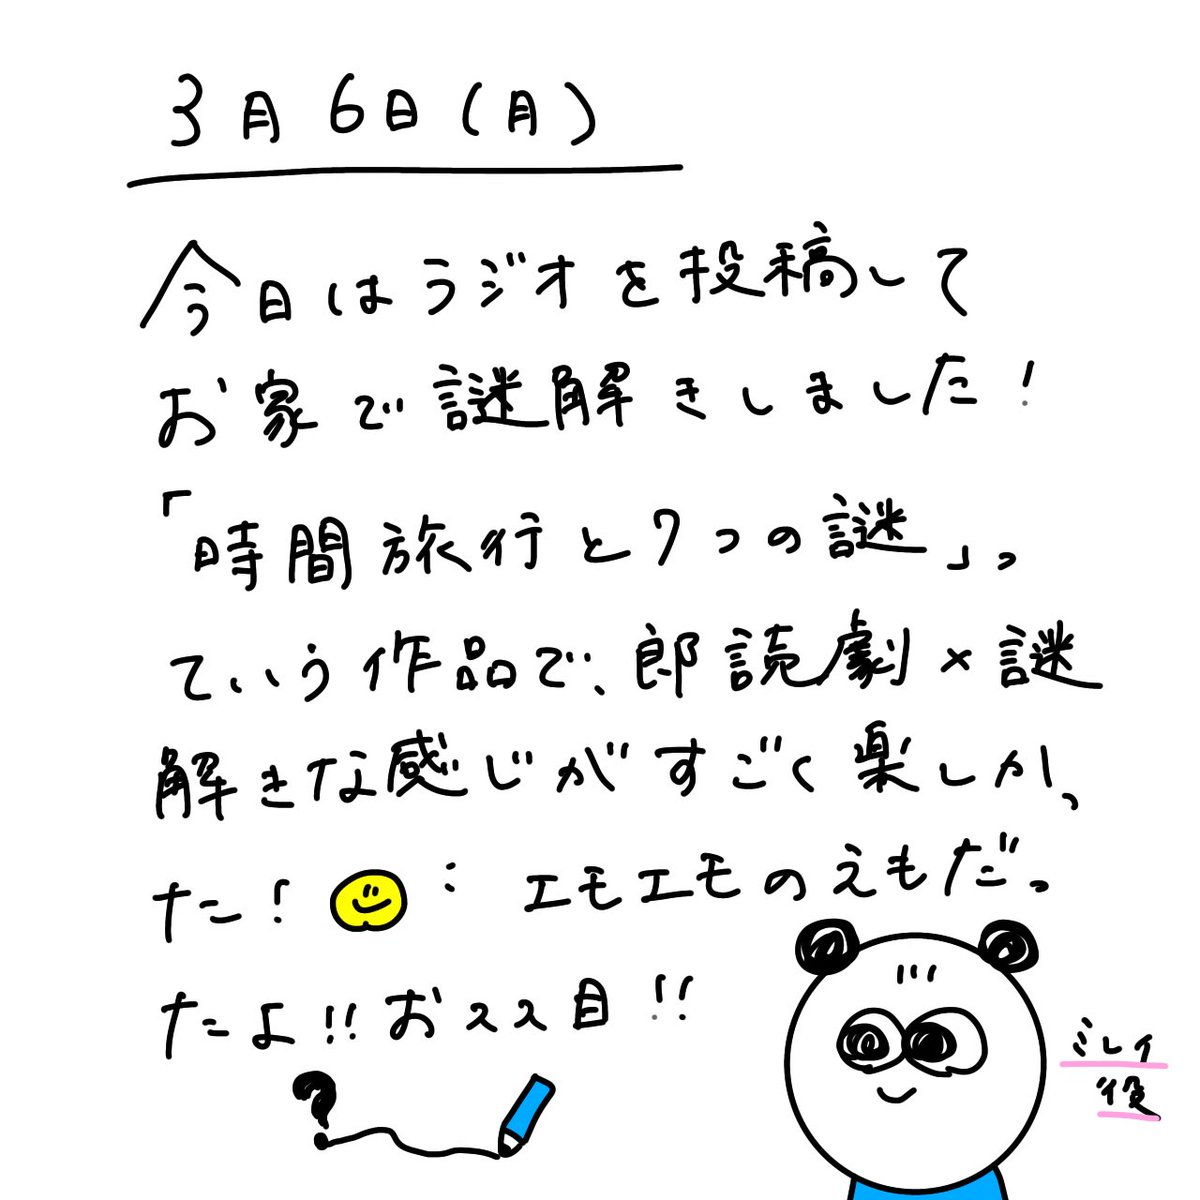 3月6日(月)
今日はラジオを投稿して
お家で謎解きしました!
「時間旅行と7つの謎」っ
ていう作品で、郎読劇×謎
解きな感じがすごく楽しかっ
た! : エモエモのえもだっ
たよ!!おススメ!!
?
ミレイ
役